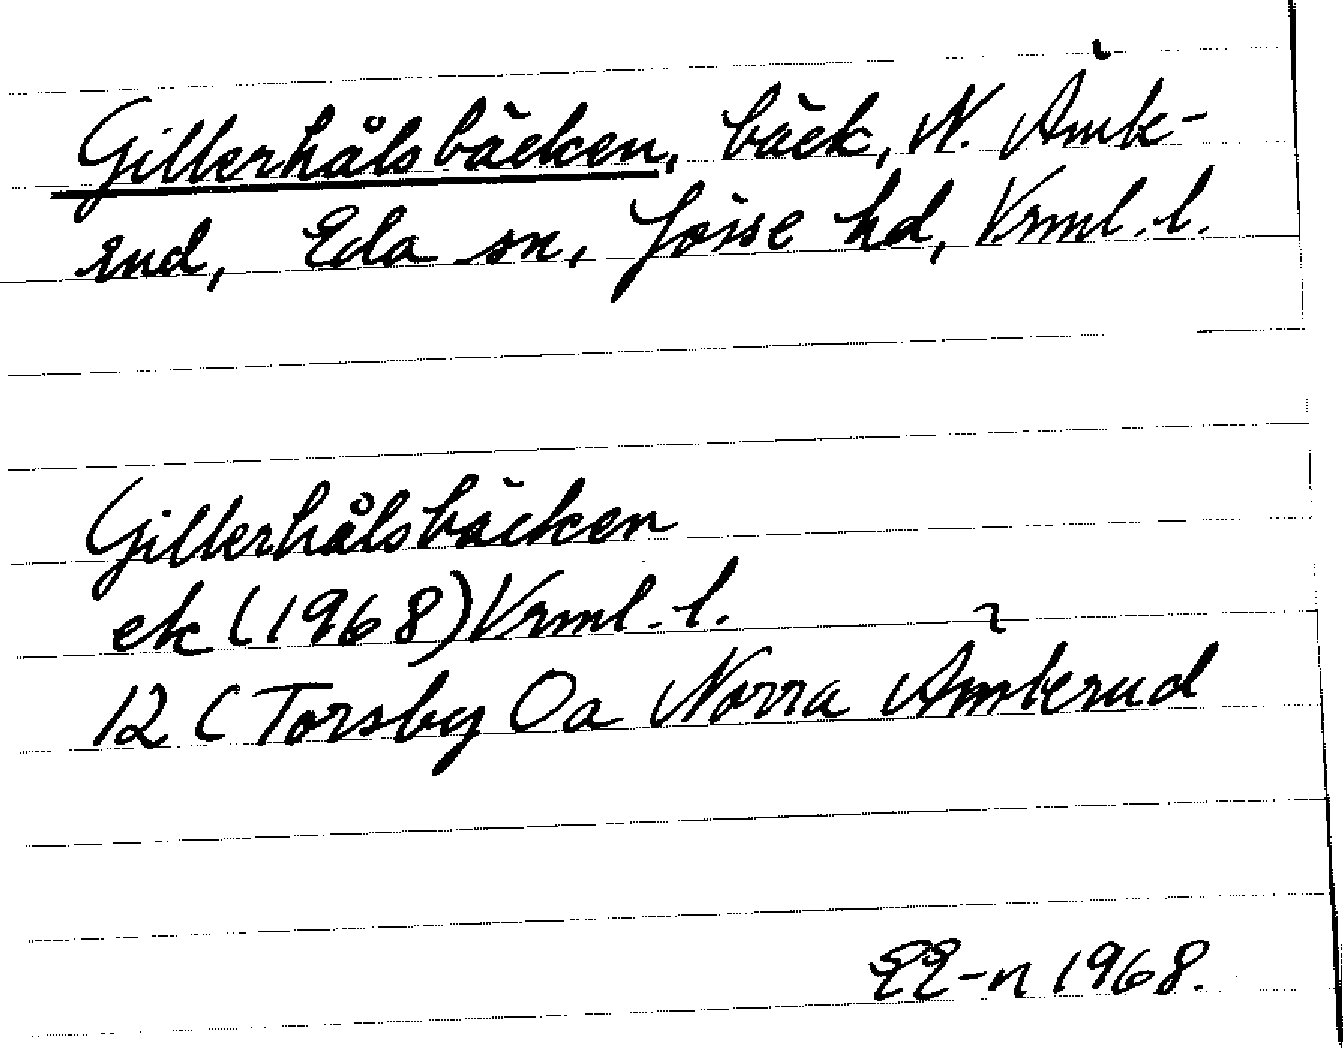 Gillerhålsbäcken, bäck, N. Ämk-
rud, Eda sn, Jösse hd, Vrml. l.
Gillerhålsbäcken
ek (1968) Vrml. l.
12 C Torsby Oa Norra Ämterud
EE-n 1968.